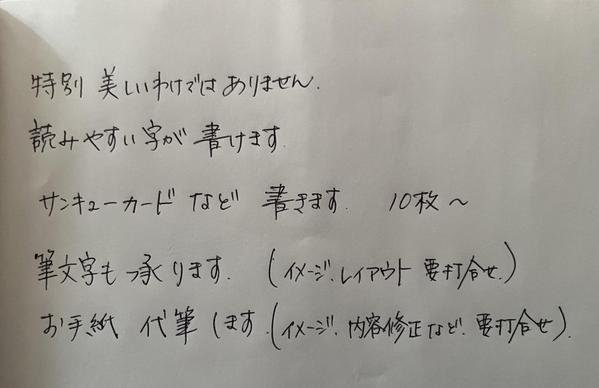 特別 美しいわけではありません.
読みやすい字が書けます.
サンキューカードなど 書きます. 10枚〜
筆文字も承ります. (イメージ、レイアウト 要打合せ.)
お手紙 代筆します.(イメージ、内容修正など、要打合せ).